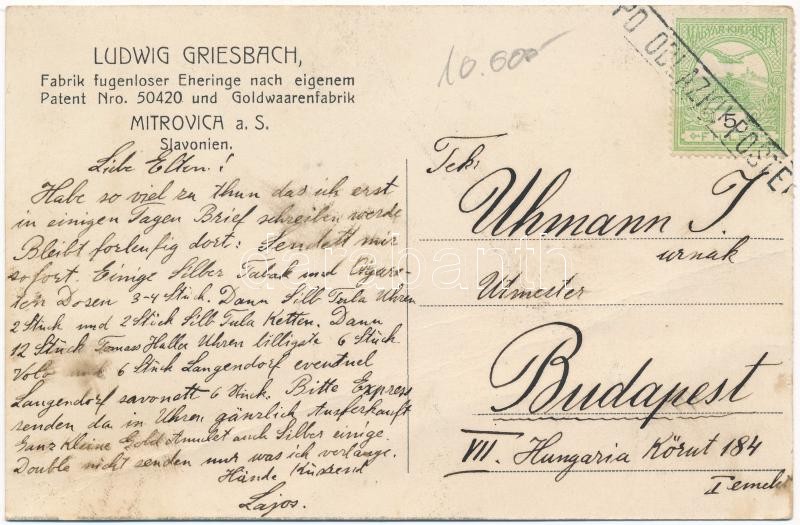 LUDWIG GRIESBACH,
Fabrik fugenloser Eheringe nach eigenem
Patent Nro. 50420 und Goldwaarenfabrik
MITROVICA a. S.
Slavonien.
10.600-
MAGYAR KIR. POSTA
5
PO ODLAZKU POŠTE
Liebe Elten!
Habe so viel zu thun das ich erst
in einigen Tagen Brief schreiben werde
Bleibt forleufig dort: Sendett mir
sofort. Einige Silber Tabak und Cigare-
ten Dosen 3-4 Stück. Dann Silb Tula Uhren
2 Stück und 2 Stück Silb Tula Ketten. Dann
12 Stück Tomas Haller Uhren billigste 6 Stück
und 6 Stük Langendorf eventuel
Langendorf savonett 6 Stück. Bitte Express
senden da in Uhren gänzlich Ausferkauft
Ganz kleine Gold Amulet auch Silber einige.
Double nicht senden nur was ich verlange.
Hände Küssend
Lajos.
Tek:
Uhmann I.
urnak
Utmester
Budapest
VII. Hungaria Körut 184
I emelet
darabanth